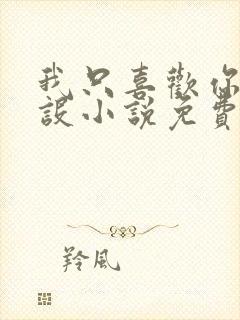 我只喜歡你
設小說免費
羚風